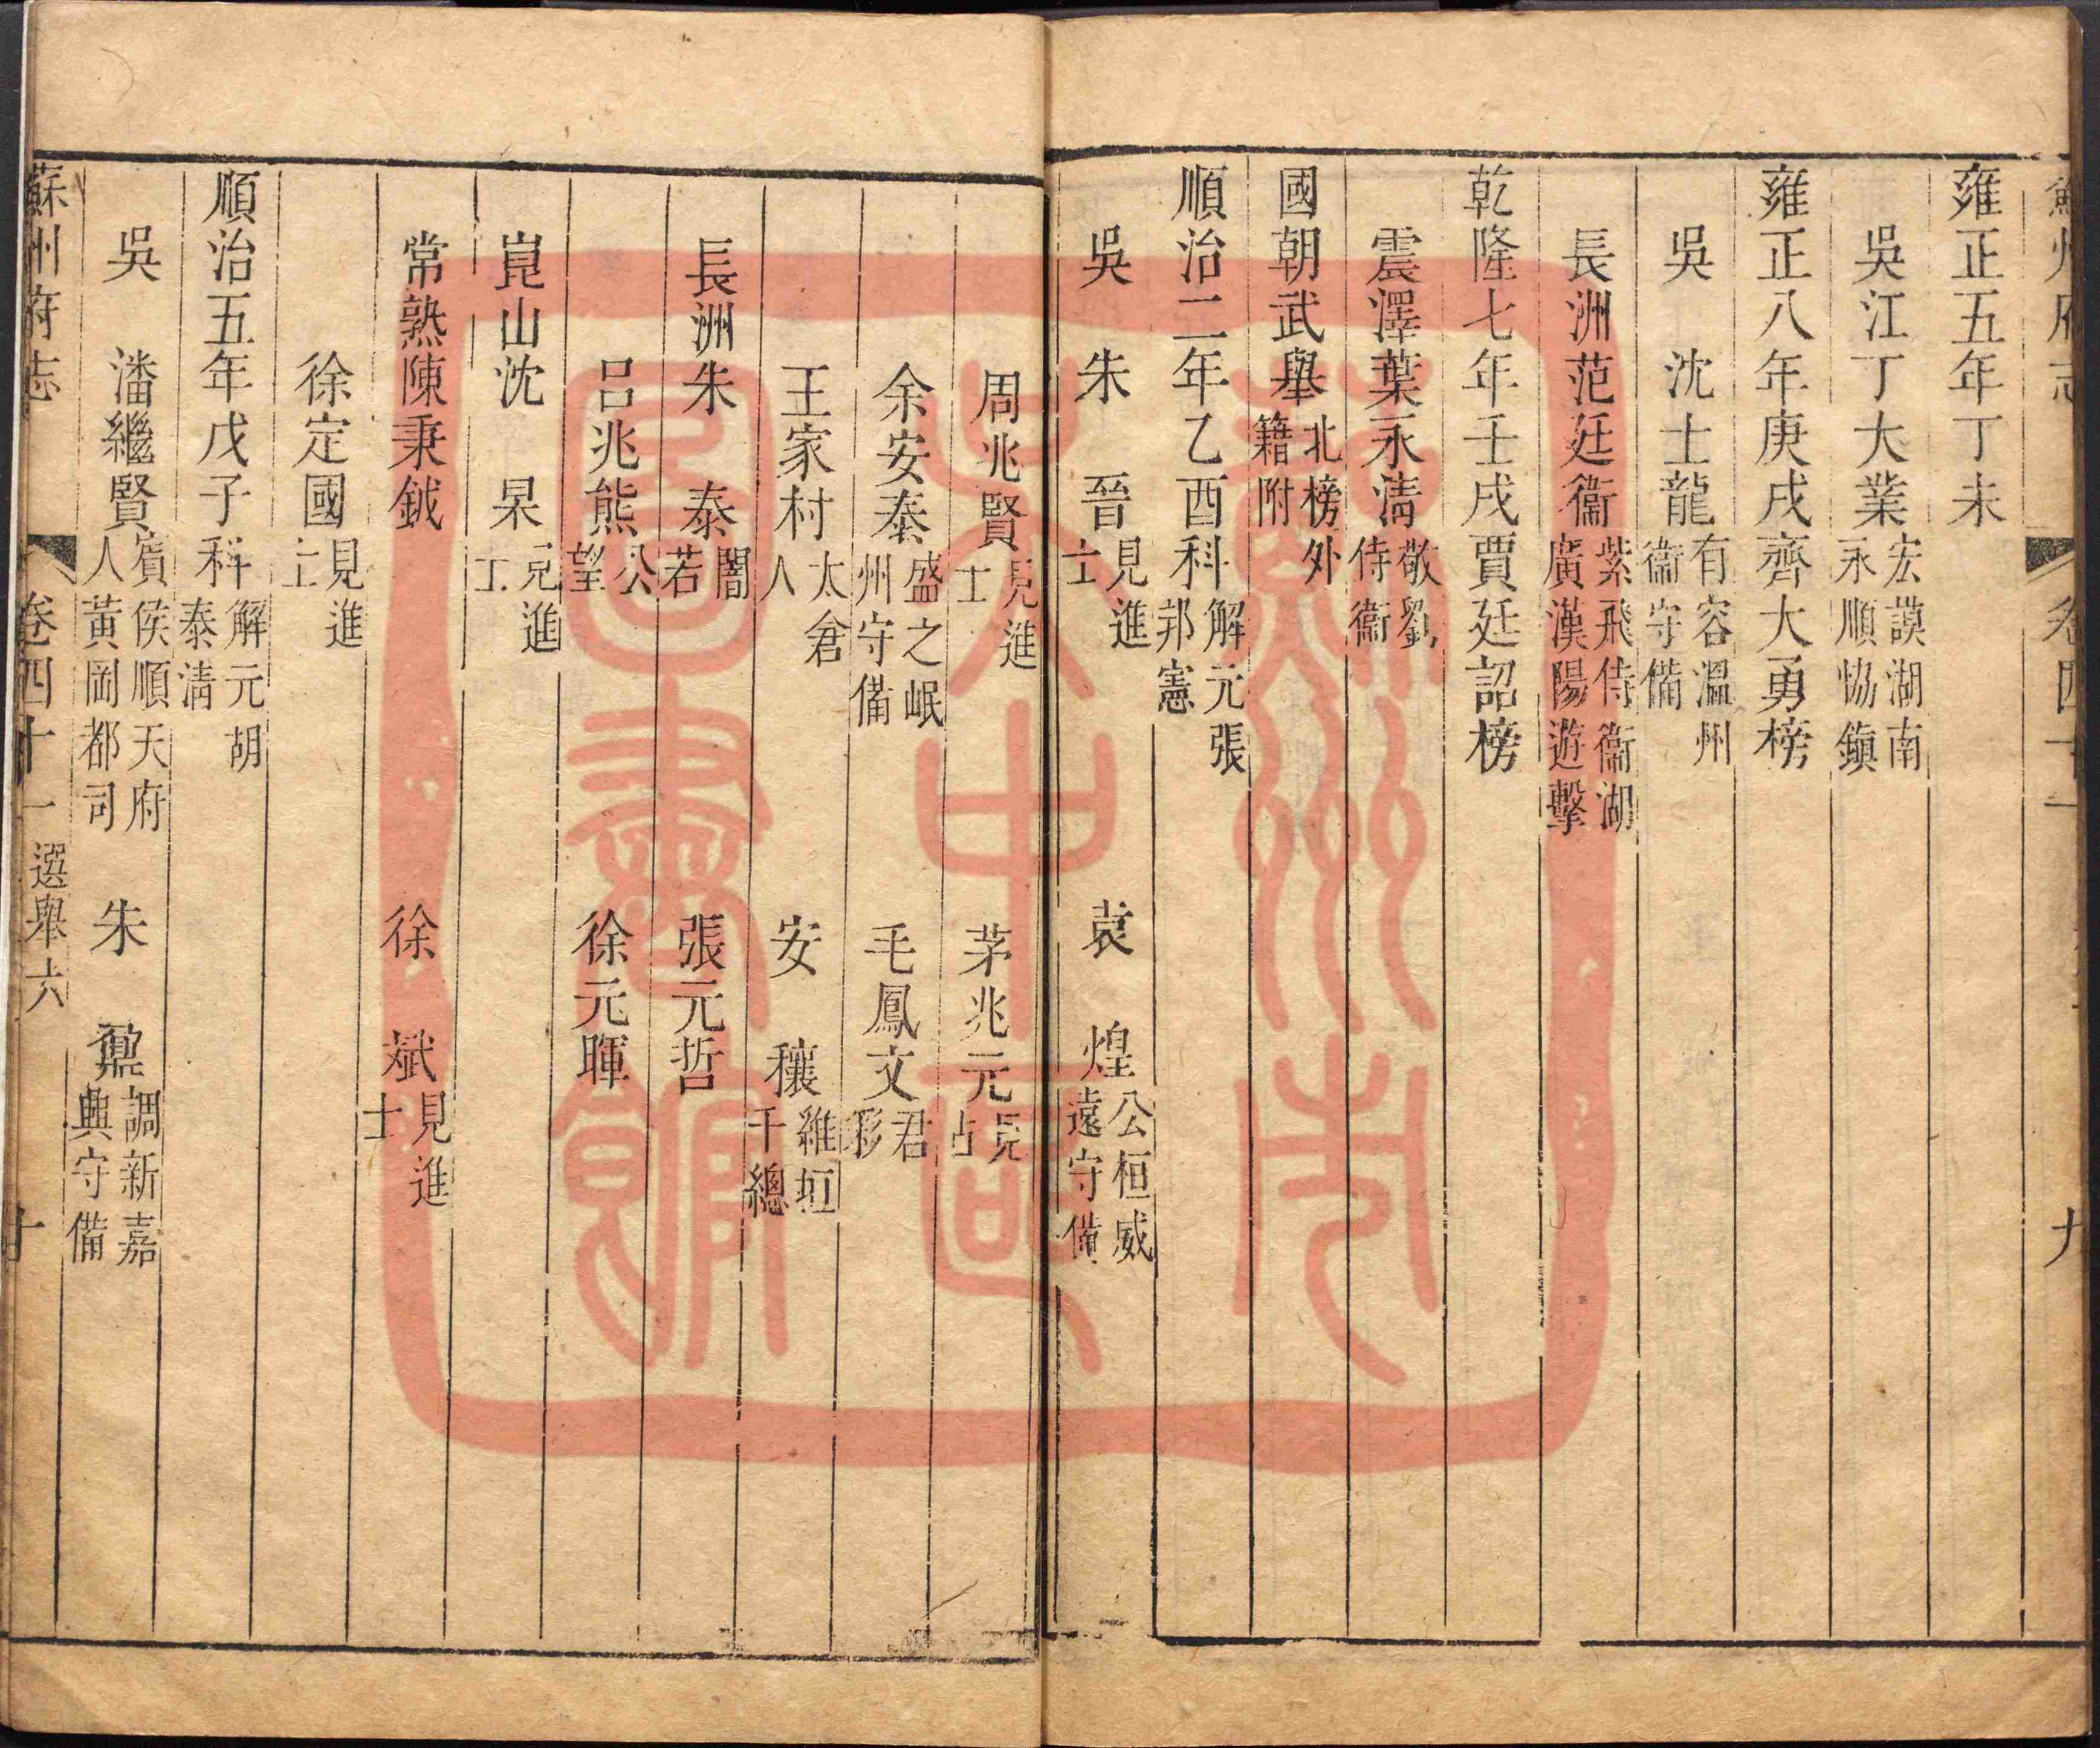 蘇州府志 卷四十一 九
雍正五年丁未
吳江丁大業宏謨湖南永順協鎮
雍正八年庚戌齊大勇榜
吳 沈士龍有容溫州衞守備
長洲范廷衞紫飛侍衞湖廣漢陽遊擊
乾隆七年壬戌賈廷詔榜
震澤葉永淸敬劉侍衞
國朝武舉北榜外籍附
順治二年乙酉科解元張邦憲
吳 朱 晉見進士 袁 煌公桓威遠守備
周兆賢見進士 茅兆元見占
余安泰盛之岷州守備 毛鳳文君彩
王家村太倉人 安 穰維垣千總
長洲朱 泰闇若 張元哲
呂兆熊公望 徐元暉
崑山沈 杲見進士
常熟陳秉鉞 徐 斌見進士
徐定國見進士
順治五年戊子科解元胡泰淸
吳 潘繼賢賓侯順天府人黃岡都司 朱 鼐調新嘉興守備
蘇州府志 卷四十一 選舉六 十
蘇州市
圖書館